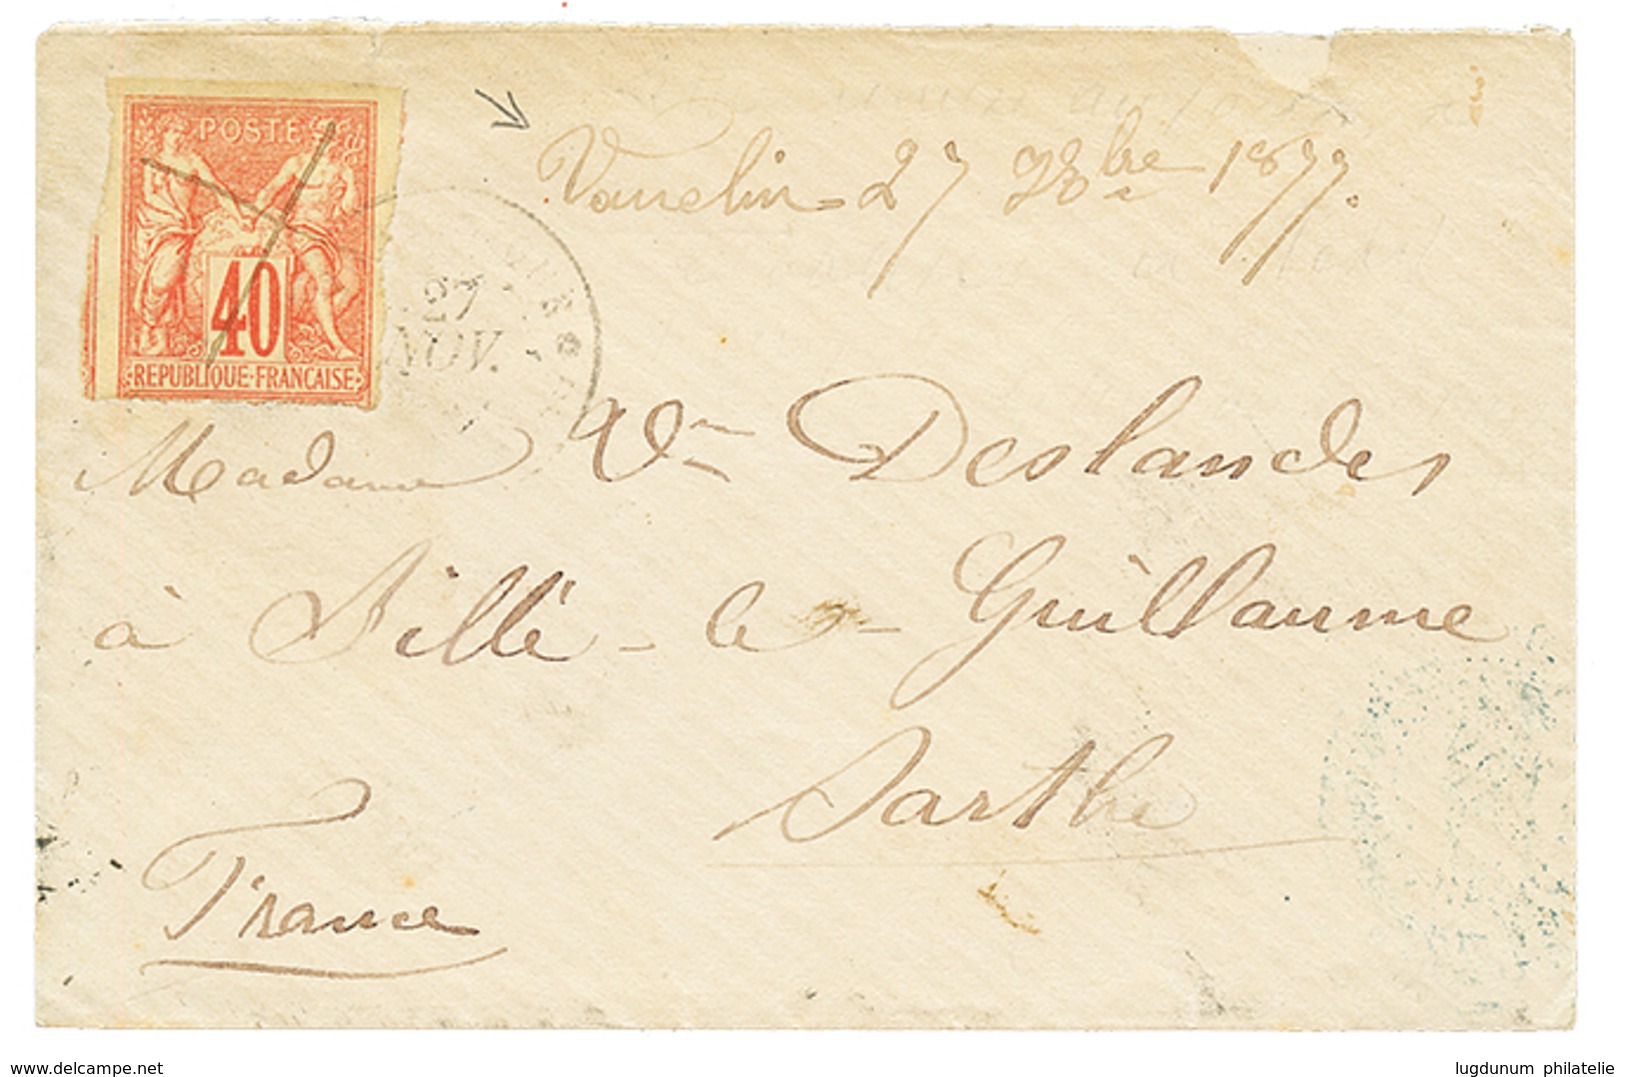 POSTE
40
REPUBLIQUE-FRANCAISE
Vauclin - 27 9bre 1877.
27
NOV.
Madame Vve Deslandes
à Sillé - le - Guillaume
Sarthe
France
www.delcampe.net
lugdunum philatelie